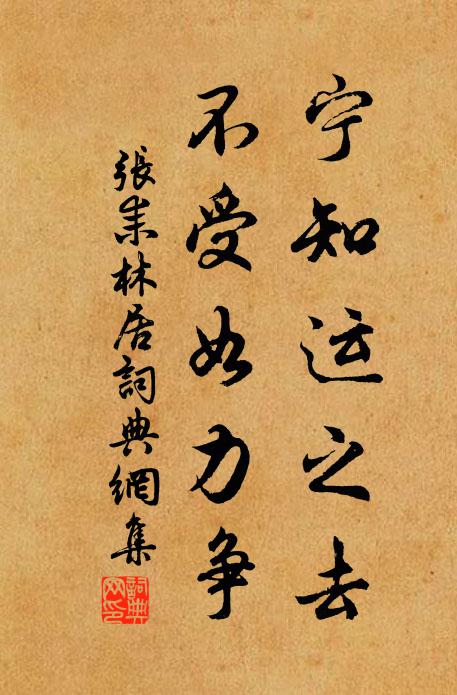 宁知运之去
不受如力争
張耒林居詞典網集
詞典
网印